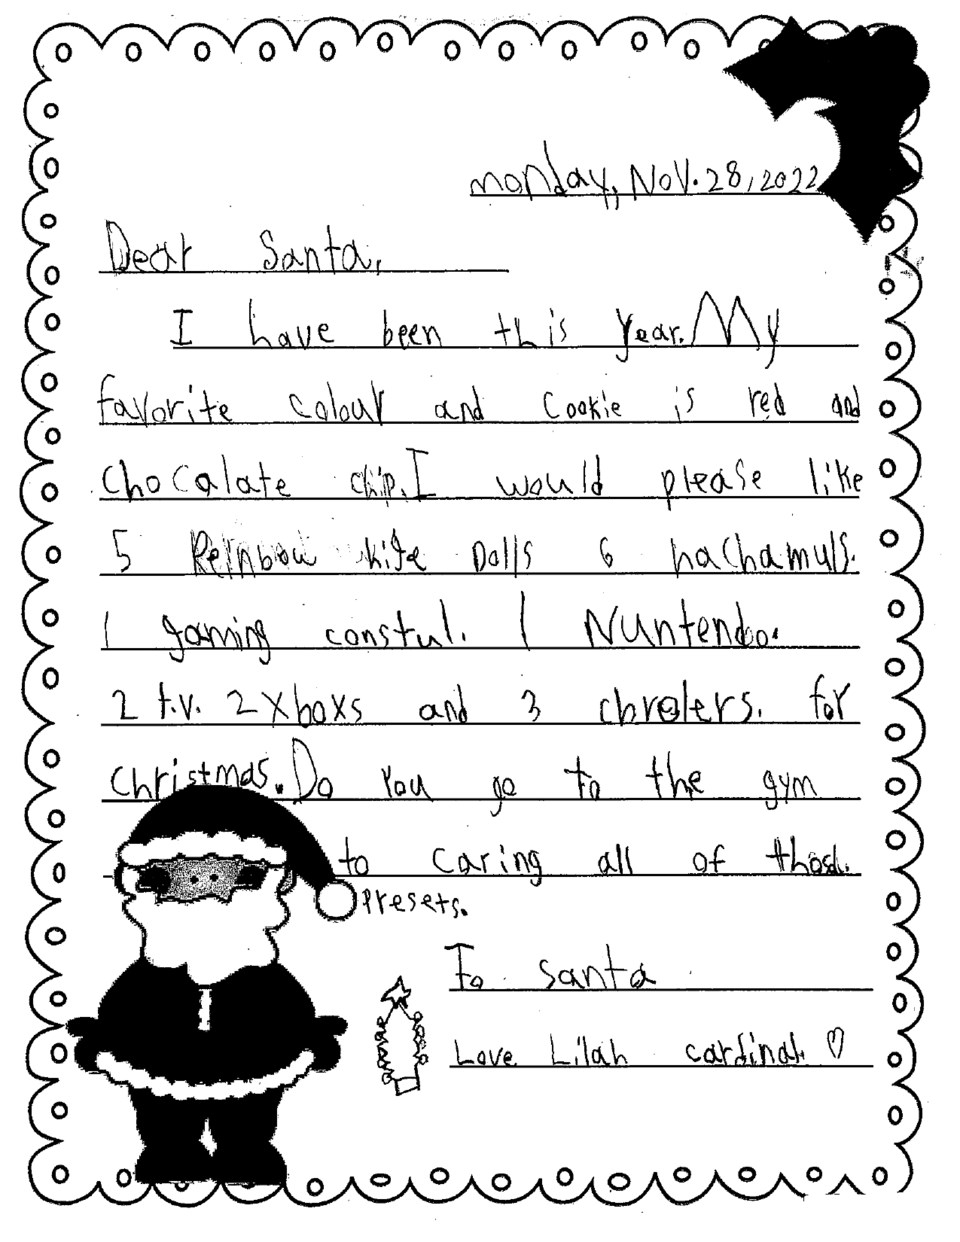 monday, Nov. 28, 2022
Dear Santa,
I have been this year. My
favorite colour and cookie is red and
chocalate chip. I would please like
5 Reinbow hige Dolls 6 hachamuls.
1 gaming constul. 1 Nuntendo.
2 t.v. 2 xboxs and 3 cbrolers. for
christmas. Do You go to the gym
to caring all of thosd.
Presets.
To santa
Love Lilah cardinal. ♡